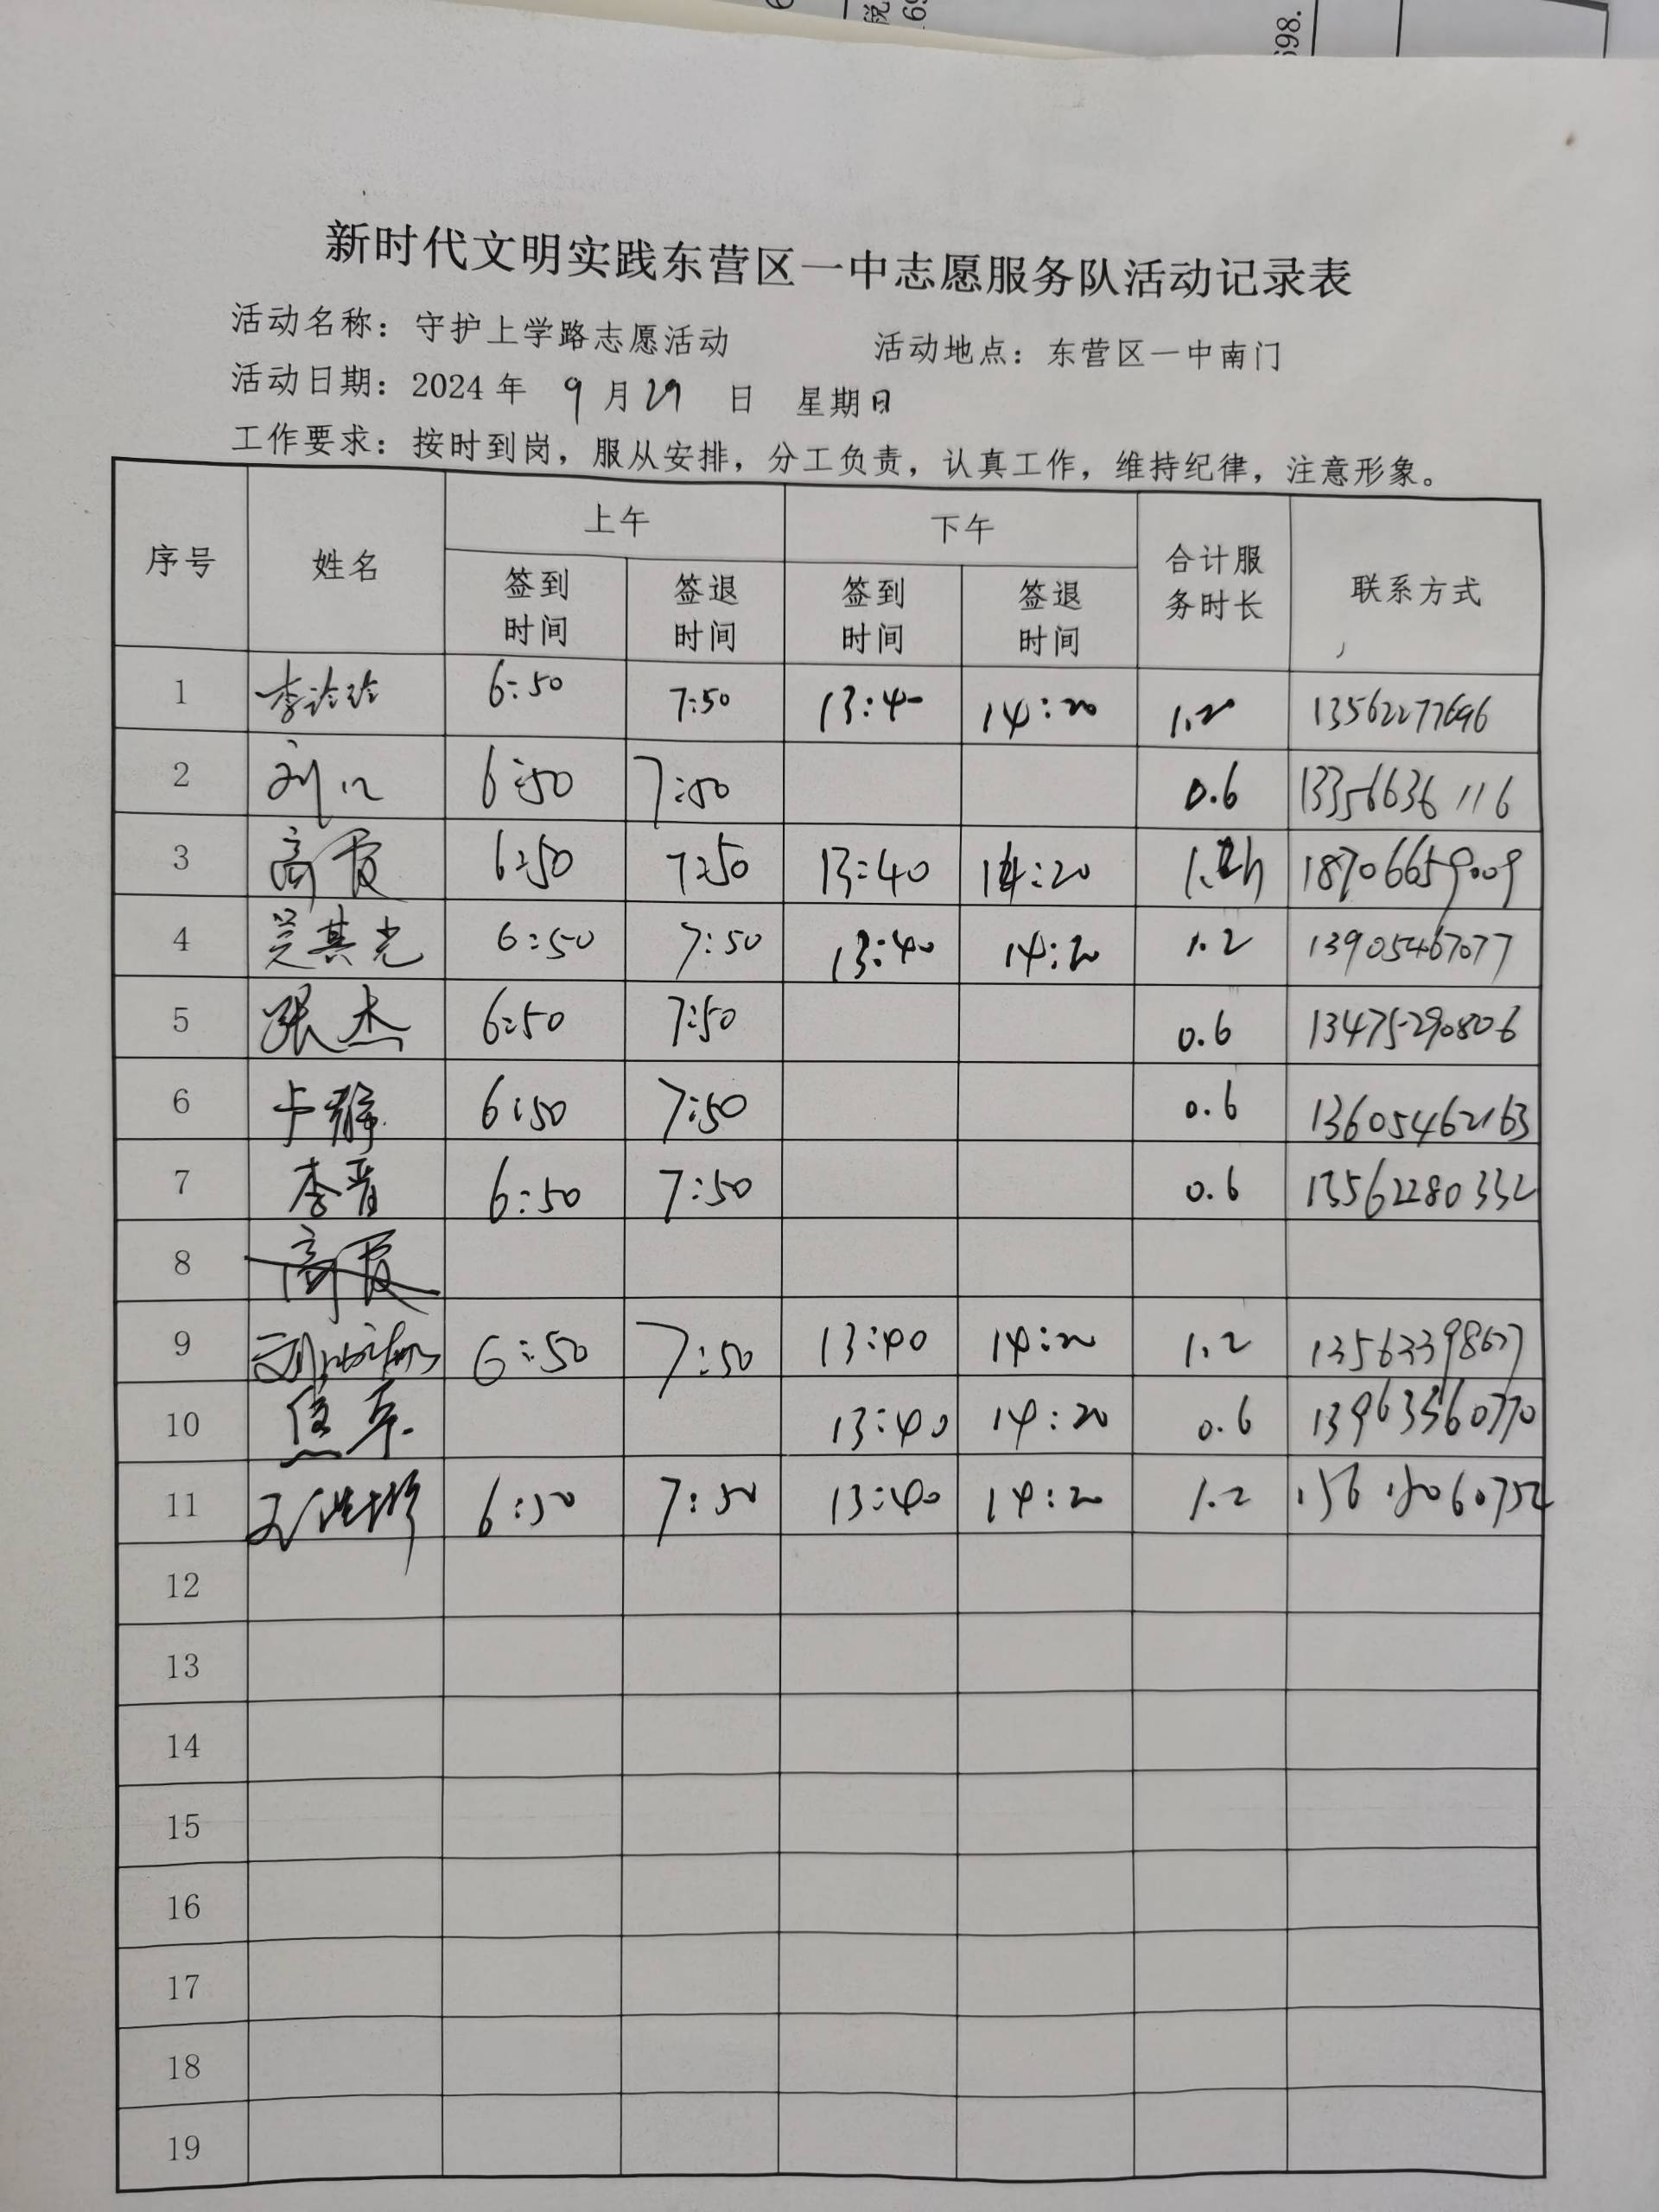 新时代文明实践东营区一中志愿服务队活动记录表
活动名称：守护上学路志愿活动 活动地点：东营区一中南门
活动日期：2024年 9月29 日 星期日
工作要求：按时到岗，服从安排，分工负责，认真工作，维持纪律，注意形象。
序号 姓名 上午 下午 合计服务时长 联系方式
签到时间 签退时间 签到时间 签退时间
1 6:50 7:50 13:40 14:20 1.2 13562277696
2 刘 6:50 7:50 0.6 13356636116
3 高霞 6:50 7:50 13:40 14:20 1.2h 18706659009
4 吴其光 6:50 7:50 13:40 14:20 1.2 13905467077
5 张杰 6:50 7:50 0.6 13475290806
6 卞静 6:50 7:50 0.6 13605462163
7 李晋 6:50 7:50 0.6 13562280332
8 高霞
9 6:50 7:50 13:40 14:20 1.2
10 13:40 14:20 0.6 13963560770
11 6:50 7:50 13:40 14:20 1.2
12
13
14
15
16
17
18
19